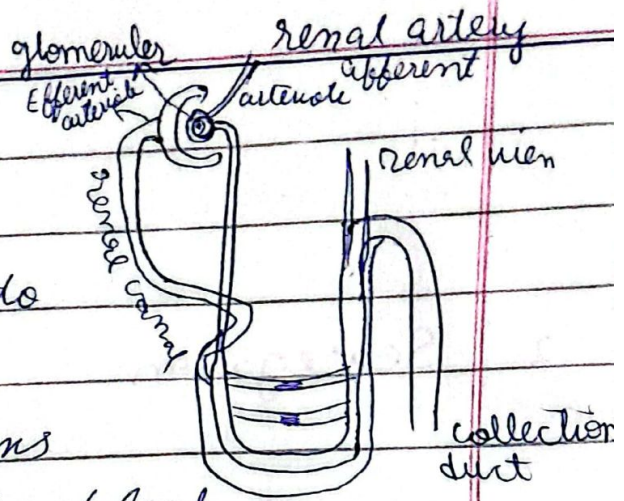 glomeruler
renal artery
afferent
arteriole
Efferent
arteriole
renal vien
renal canal
do
ns
collection
duct